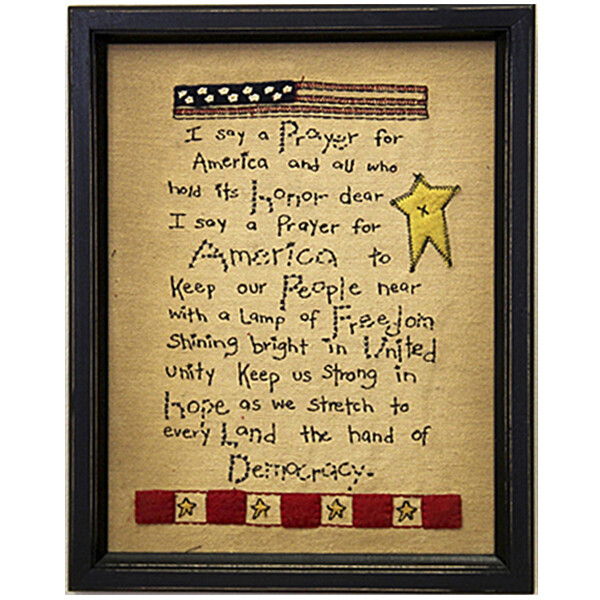 I say a Prayer for
America and all who
hold its Honor dear
I say a Prayer for
America to
Keep our People near
with a Lamp of Freedom
Shining bright in United
unity Keep us Strong in
Hope as we Stretch to
every Land the hand of
Democracy.